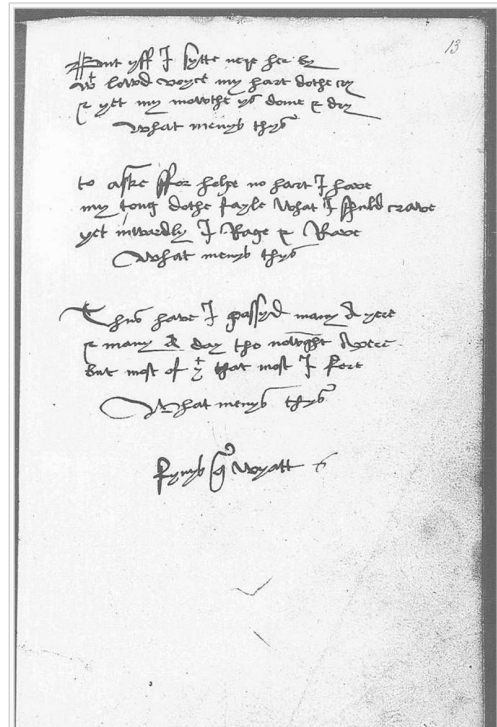 13
But yff I sytte nere her by
wt lowd voyce my hart dothe cry
& yet my mowthe ys dome & dry
What menys thys
to aske ffor helpe no hart I have
my tong dothe fayle What I shuld crave
yet inwardly I Rage & Rave
What menys thys
Thus have I passyd many A yere
& many A day tho nowght Apere
But most of yt that most I fere
What menys thys
fynys qd Wyatt